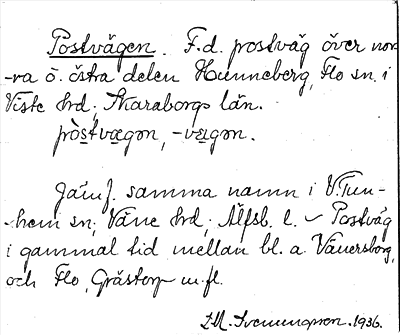 Postvägen. F.d. postväg över nor-
-ra o. östra delen Hunneberg, Flo sn. i
Viste hrd; Skaraborgs län.
pòstvægən, -vægən.
Jämf. samma namn i V. Tun-
-hem sn; Väne hrd; Älfsb. l. – Postväg
i gammal tid mellan bl. a. Vänersborg,
och Flo, Grästorp m.fl.
Svenungson. 1936.